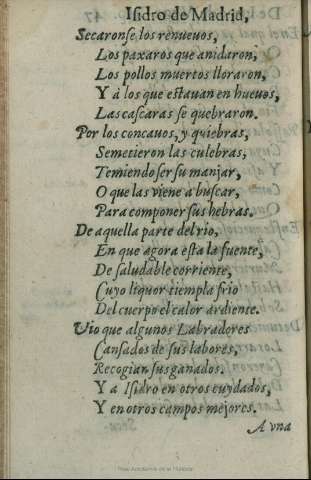 Isidro de Madrid,
Secaronse los renuevos,
Los paxaros que anidaron,
Los pollos muertos lloraron,
Y à los que estauan en hueuos,
Las cascaras se quebraron.
Por los concauos, y quiebras,
Semetieron las culebras,
Temiendo ser su manjar,
O que las viene a buscar,
Para componer sus hebras.
De aquella parte del rio,
En que agora esta la fuente,
De saludable corriente,
Cuyo liquor tiempla frio
Del cuerpo el calor ardiente.
Vio que algunos Labradores
Cansados de sus labores,
Recogian sus ganados.
Y a Isidro en otros cuydados,
Y en otros campos mejores.
A vna
Real Academia de la Historia